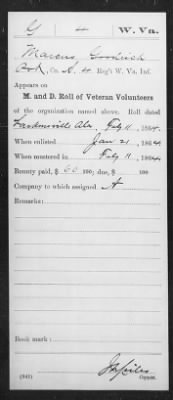 G 4 W. Va.
Marcus Goodrich
Co. A, 4 Reg't W. Va. Inf.
Appears on
M. and D. Roll of Veteran Volunteers
of the organization named above. Roll dated
Larkinsville Ala. Feb 11, 1864.
When enlisted Jan 21, 1864
When mustered in Feb 11, 1864
Bounty paid, $ 60 100; due, $ 100
Company to which assigned A
Remarks:
Book mark:
(341) Copyist.